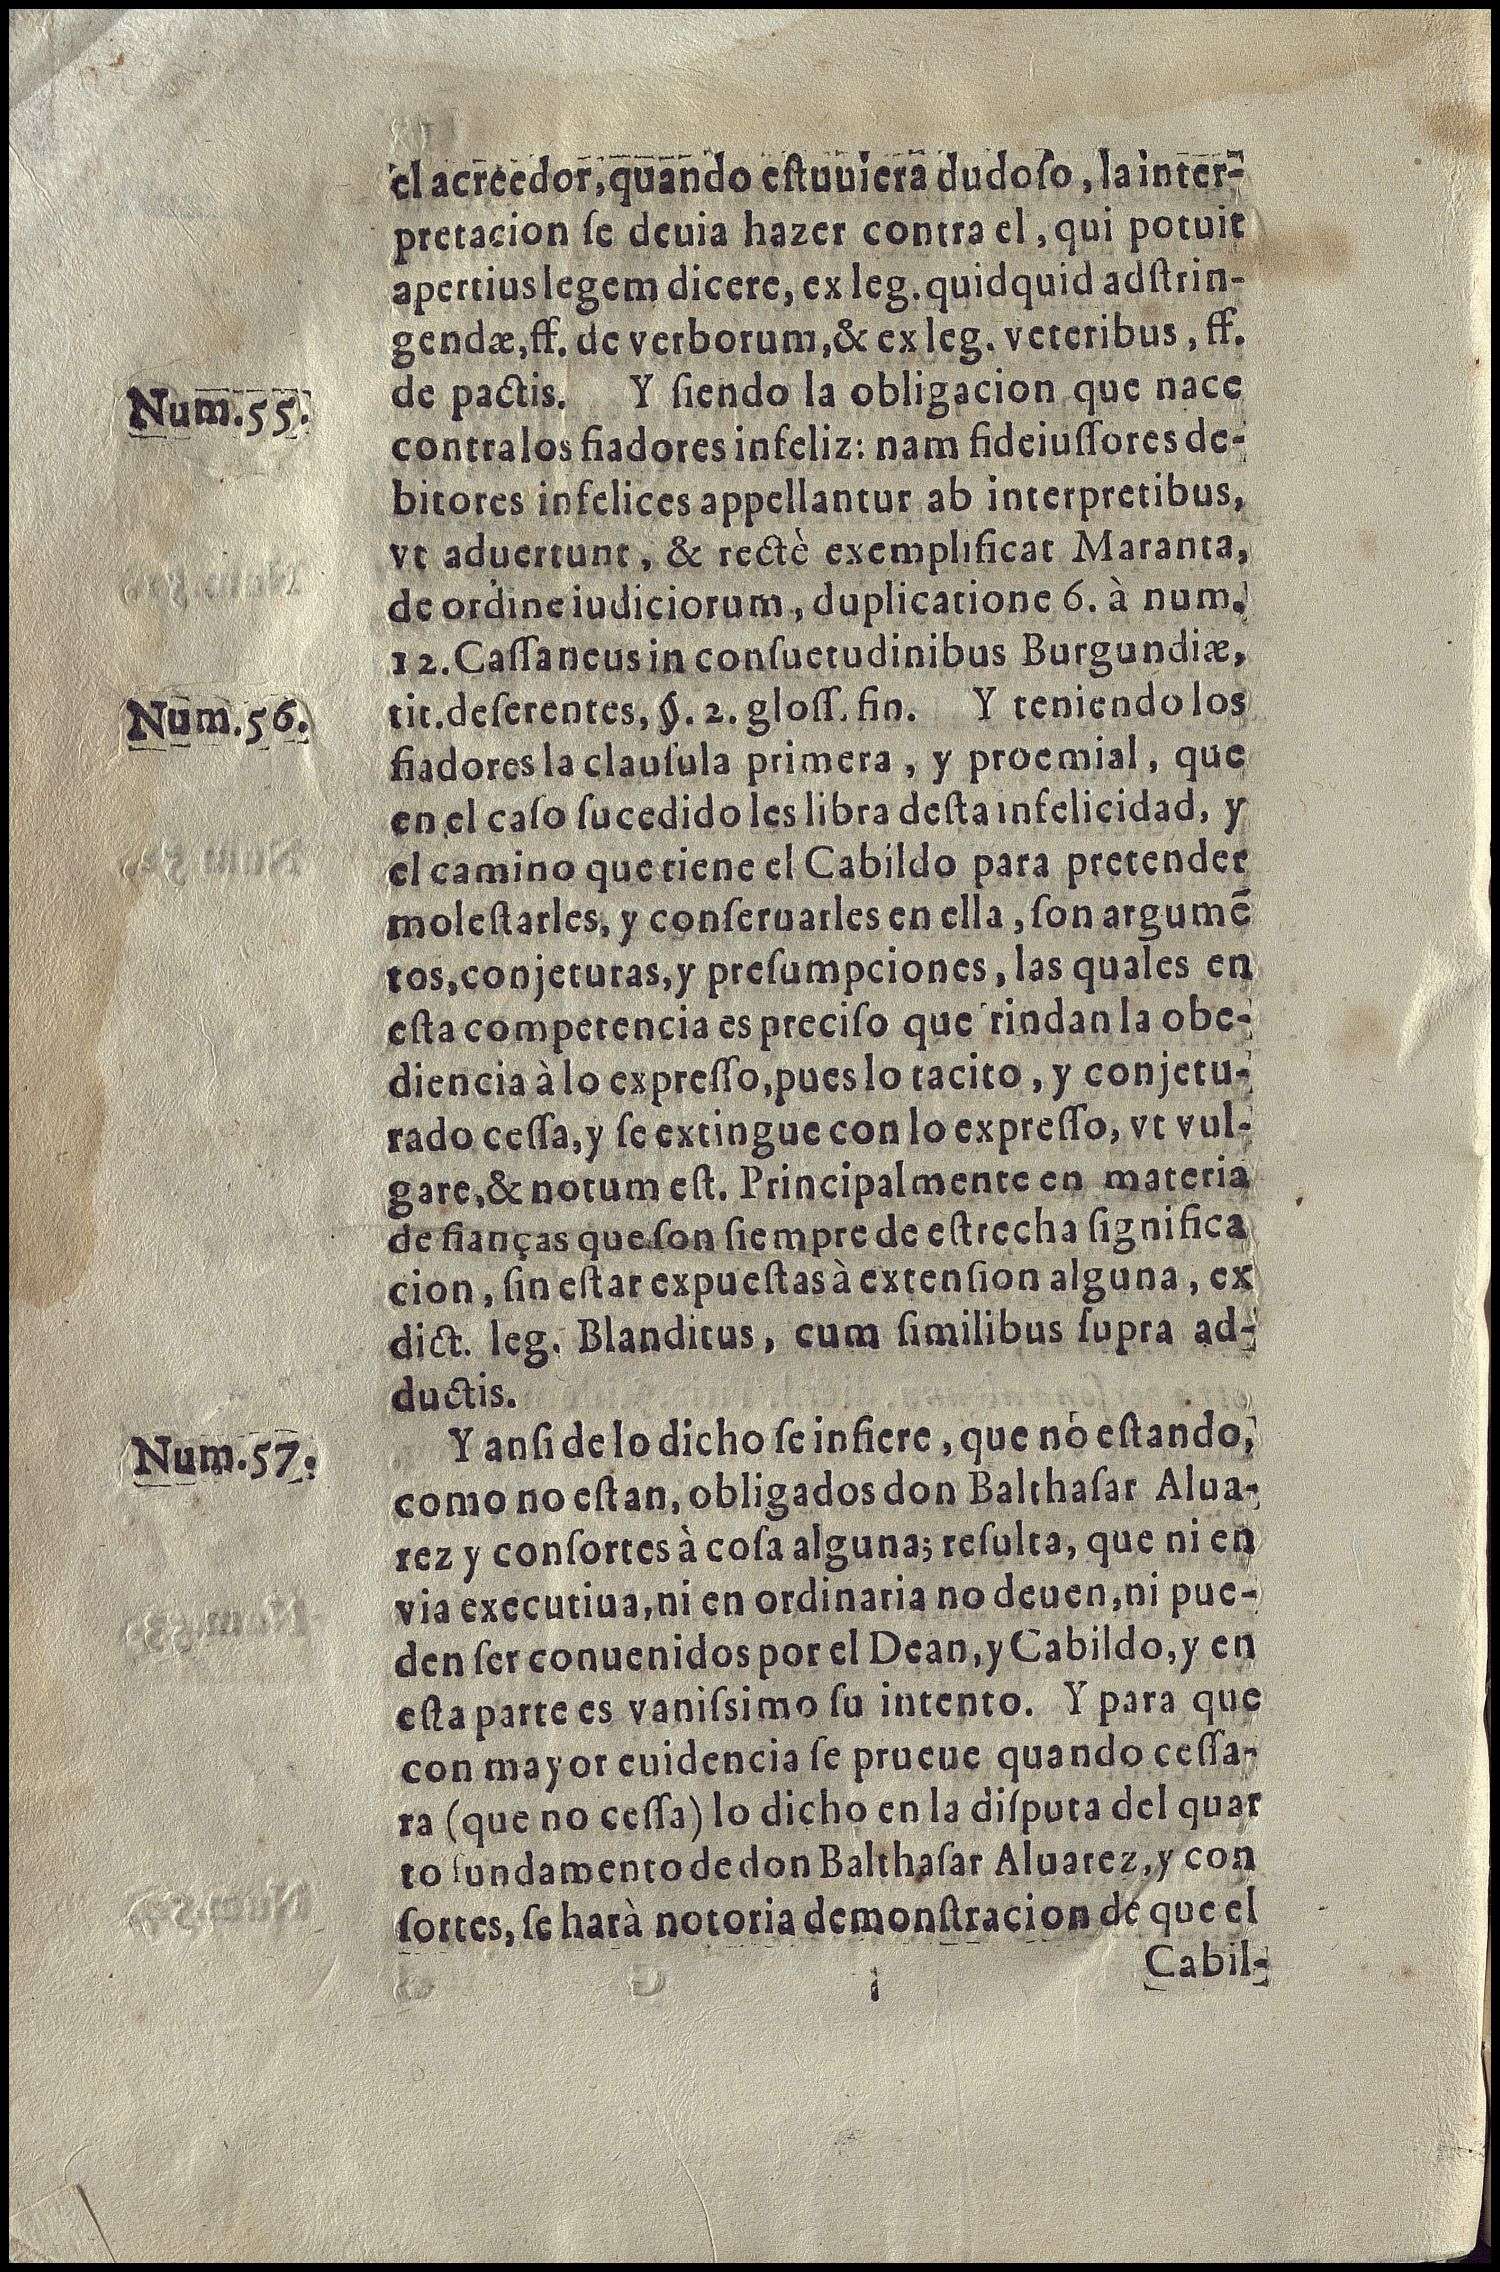 el acreedor, quando eſtuuiera dudoſo, la inter-
pretacion ſe deuia hazer contra el, qui potuit
apertius legem dicere, ex leg. quidquid adſtrin-
gendæ, ff. de verborum, & ex leg. veteribus, ff.
Num. 55. de pactis. Y ſiendo la obligacion que nace
contra los fiadores infeliz: nam fideiuſſores de-
bitores infelices appellantur ab interpretibus,
vt aduertunt, & rectè exemplificat Maranta,
de ordine iudiciorum, duplicatione 6. à num.
12. Caſſaneus in conſuetudinibus Burgundiæ,
Num. 56. tit. deſerentes, §. 2. gloſſ. fin. Y teniendo los
fiadores la clauſula primera, y proemial, que
en el caſo ſucedido les libra deſta infelicidad, y
el camino que tiene el Cabildo para pretender
moleſtarles, y conſeruarles en ella, ſon argumẽ
tos, conjeturas, y preſumpciones, las quales en
eſta competencia es preciſo que rindan la obe-
diencia à lo expreſſo, pues lo tacito, y conjetu-
rado ceſſa, y ſe extingue con lo expreſſo, vt vul-
gare, & notum eſt. Principalmente en materia
de fianças que ſon ſiempre de eſtrecha ſignifica
cion, ſin eſtar expueſtas à extenſion alguna, ex
dict. leg. Blanditus, cum ſimilibus ſupra ad-
ductis.
Num. 57. Y anſi de lo dicho ſe infiere, que no eſtando,
como no eſtan, obligados don Balthaſar Alua-
rez y conſortes à coſa alguna; reſulta, que ni en
via executiua, ni en ordinaria no deuen, ni pue-
den ſer conuenidos por el Dean, y Cabildo, y en
eſta parte es vaniſsimo ſu intento. Y para que
con mayor euidencia ſe prueue quando ceſſa-
ra (que no ceſſa) lo dicho en la diſputa del quar
to fundamento de don Balthaſar Aluarez, y con
ſortes, ſe harà notoria demonſtracion de que el
Cabil-